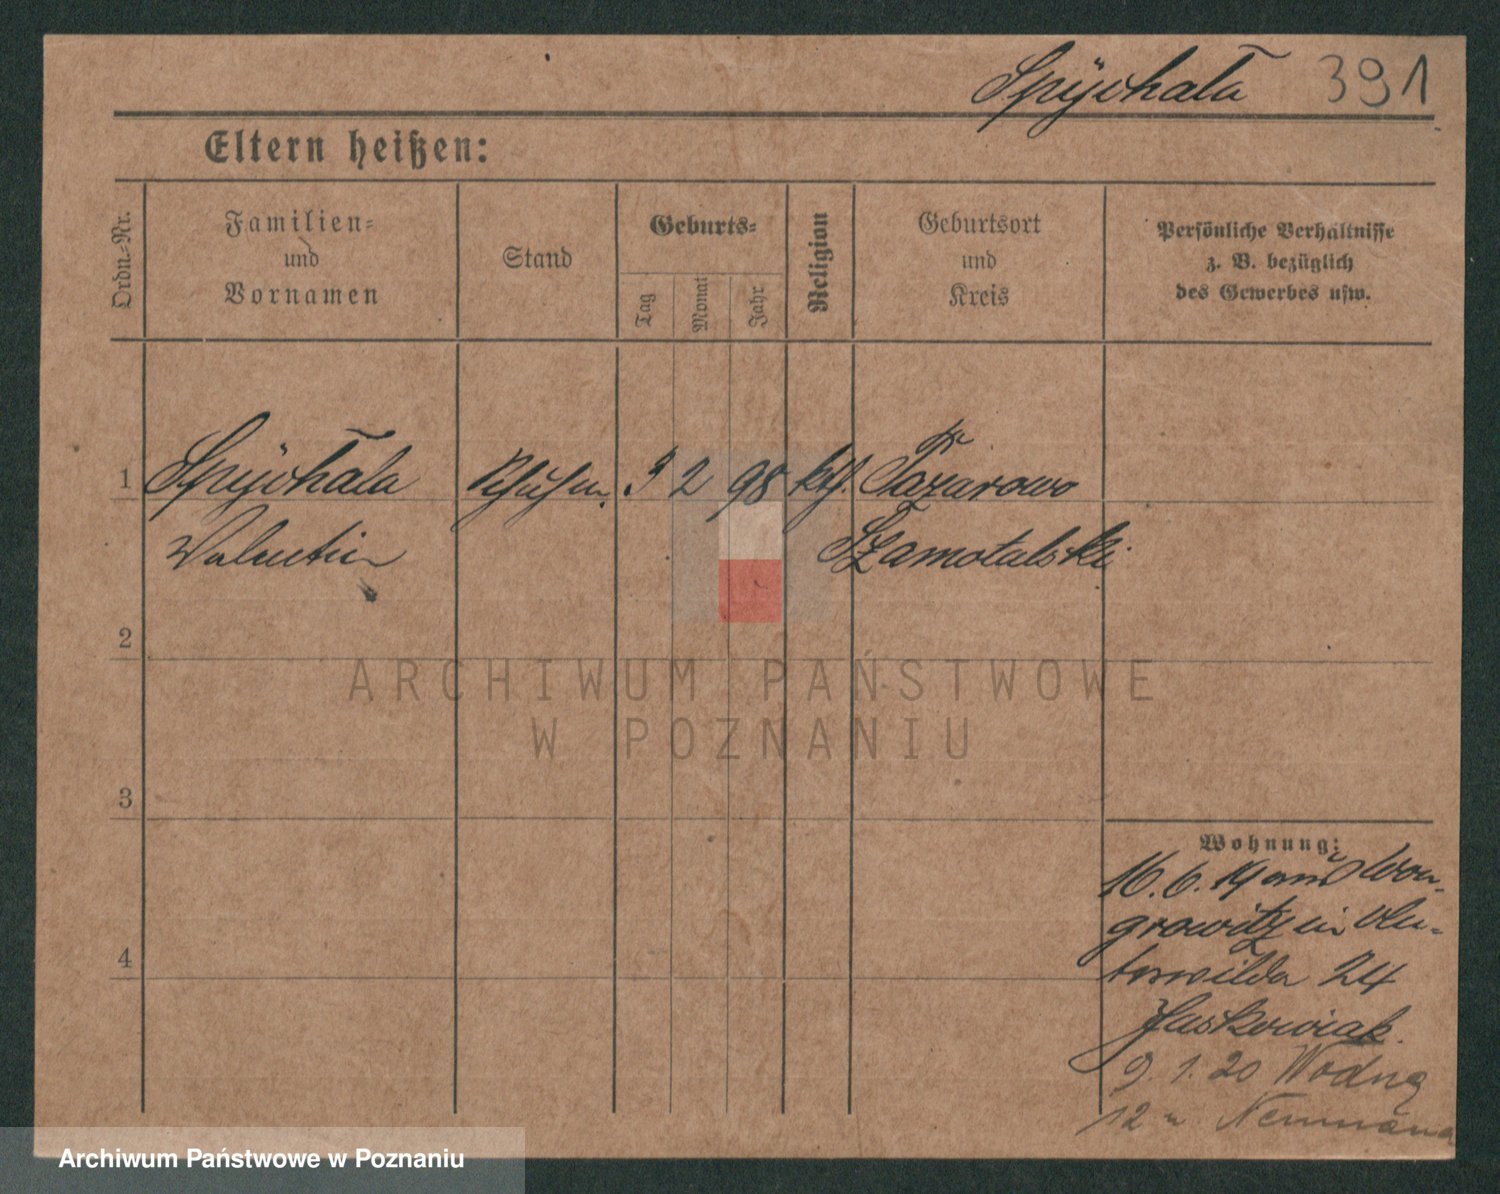 Spÿchała 391
Eltern heißen:
Ordn.-Nr.
Familien-
und
Vornamen
Stand
Geburts-
Tag
Monat
Jahr
Religion
Geburtsort
und
Kreis
Persönliche Verhältnisse
z. B. bezüglich
des Gewerbes usw.
1 Spÿchała 3 2 98 kth.
Valentin Szamotulski
2
3
4
Wohnung:
16.6.19 aus Won-
growitz in Un-
terwilda 24
Jaskowiak.
9.1.20 Wodna
12 u Neumana
ARCHIWUM PAŃSTWOWE
W POZNANIU
Archiwum Państwowe w Poznaniu